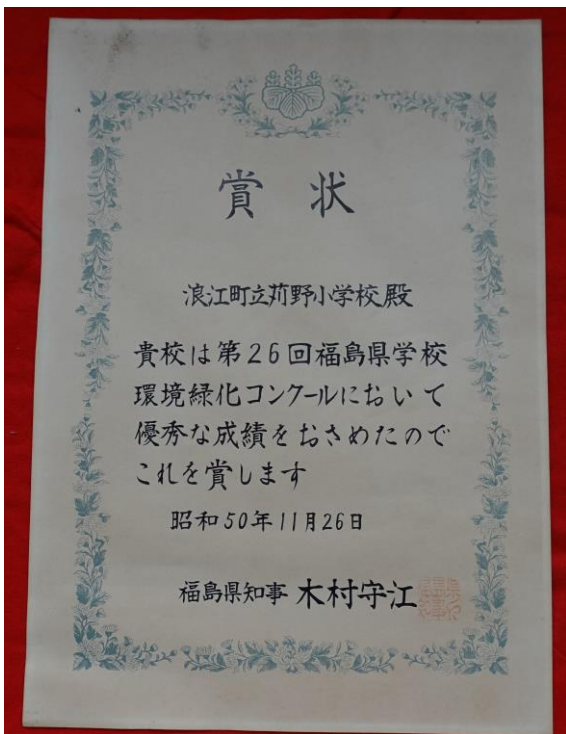 賞状
浪江町立苅野小学校殿
貴校は第26回福島県学校
環境緑化コンクールにおいて
優秀な成績をおさめたので
これを賞します
昭和50年11月26日
福島県知事 木村守江